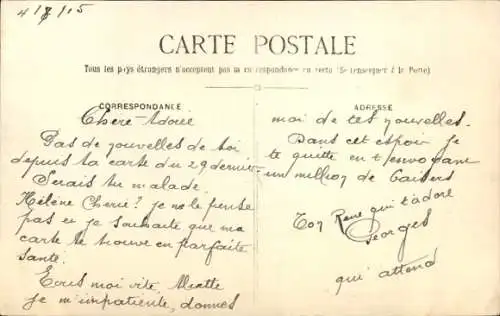 4 1 7 15
CARTE POSTALE
Tous les pays étrangers n'acceptent pas la correspondance au verso (Se renseigner à la Poste)
CORRESPONDANCE
ADRESSE
Chere Adorée
Pas de nouvelles de toi
depuis ta carte du 29 dernier.
Serais tu malade
Hélène Cherie? je ne le pense
pas et je souhaite que ma
carte te trouve en parfaite
santé.
Ecris moi vite,
je m'impatiente, donnes
moi de tes nouvelles.
Dans cet espoir je
te quitte en t'envoyant
un million de Baisers
Ton René qui t'adore
Georges
qui attend